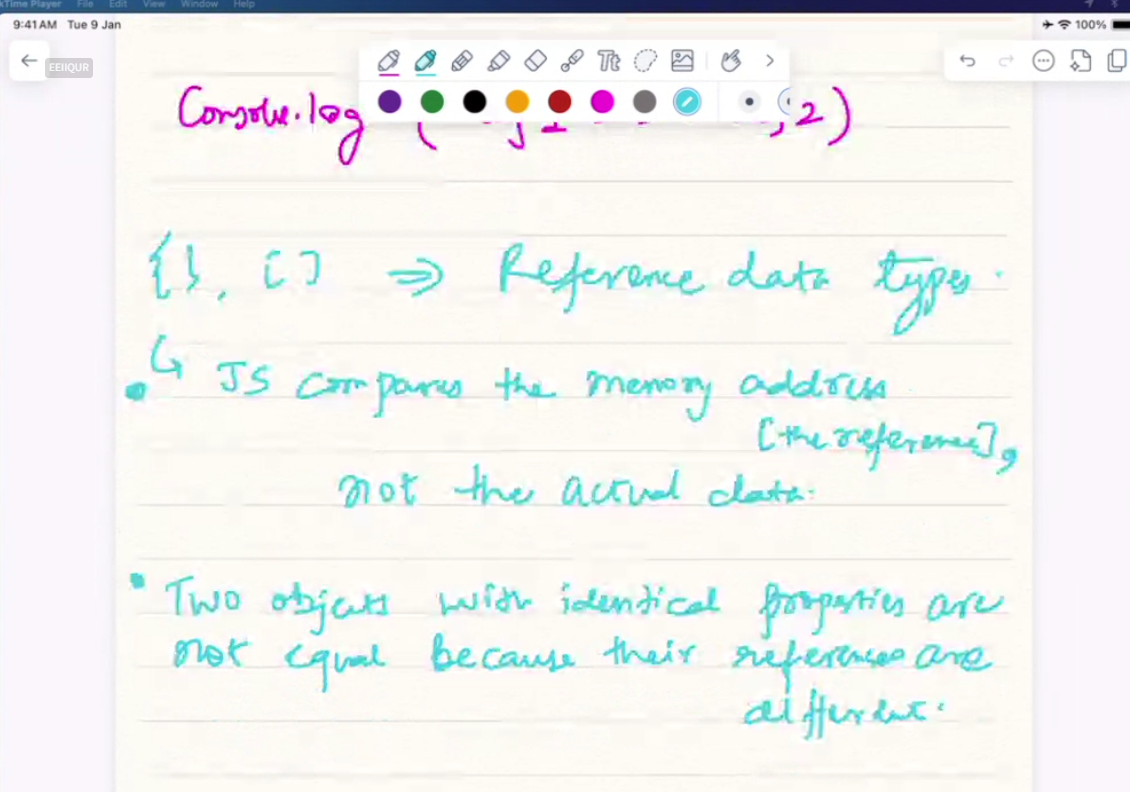 Time Player File Edit View Window Help
9:41 AM Tue 9 Jan
100%
EEIIQUR
Tt
Console.log ( 2)
{}, [] ⇒ Reference data types.
↳ JS compares the memory address
[the reference],
not the actual data.
• Two objects with identical properties are
not equal because their references are
different.